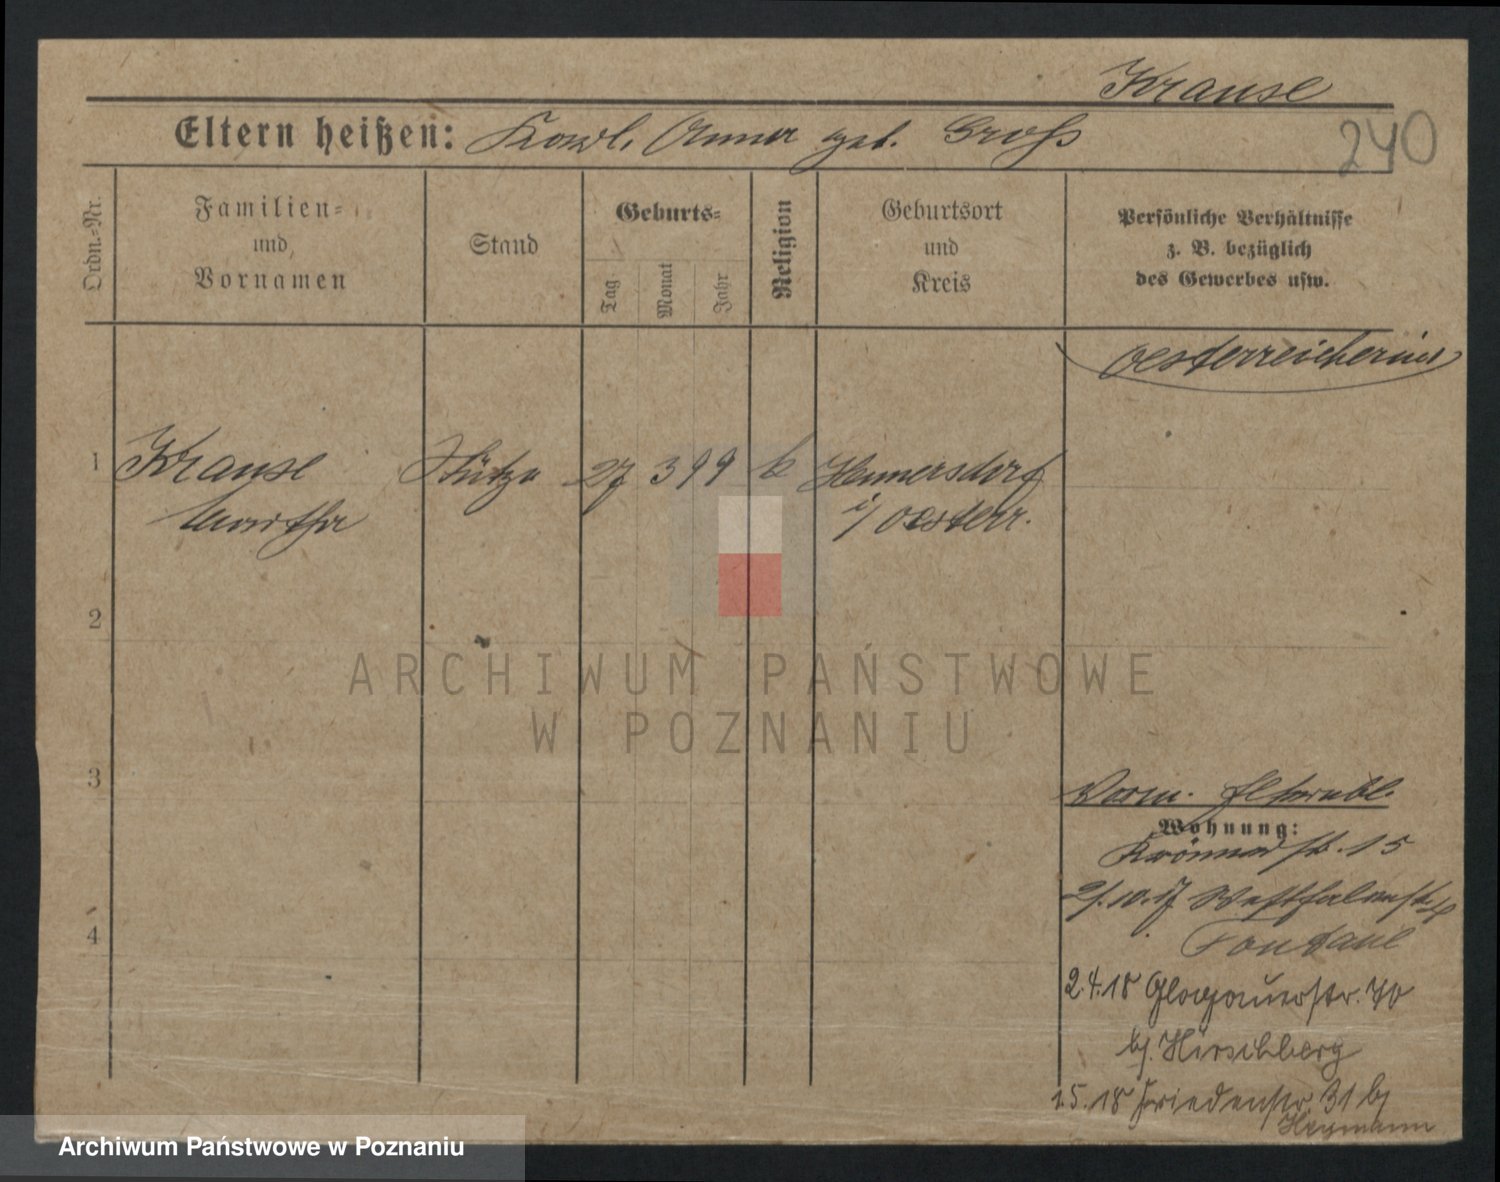 Krause
240
Eltern heißen: Karl, Anna geb. Groß
Ordn.-Nr.
Familien-
und
Vornamen
Stand
Geburts-
Tag
Monat
Jahr
Religion
Geburtsort
und
Kreis
Persönliche Verhältnisse
z. B. bezüglich
des Gewerbes usw.
Oesterreicherin
1 Krause Stütze 27 3 99 k Hennersdorf
Martha i/ Oesterr.
2
ARCHIWUM PAŃSTWOWE
W POZNANIU
3
Wohnung:
str. 15
4
2/.10.17 Westfalenstr.
Fontane
2.4.18 Glogauerstr. 70
bj. Hirschberg
1.5.18 Friedenstr. 31 bj
Heymann
Archiwum Państwowe w Poznaniu